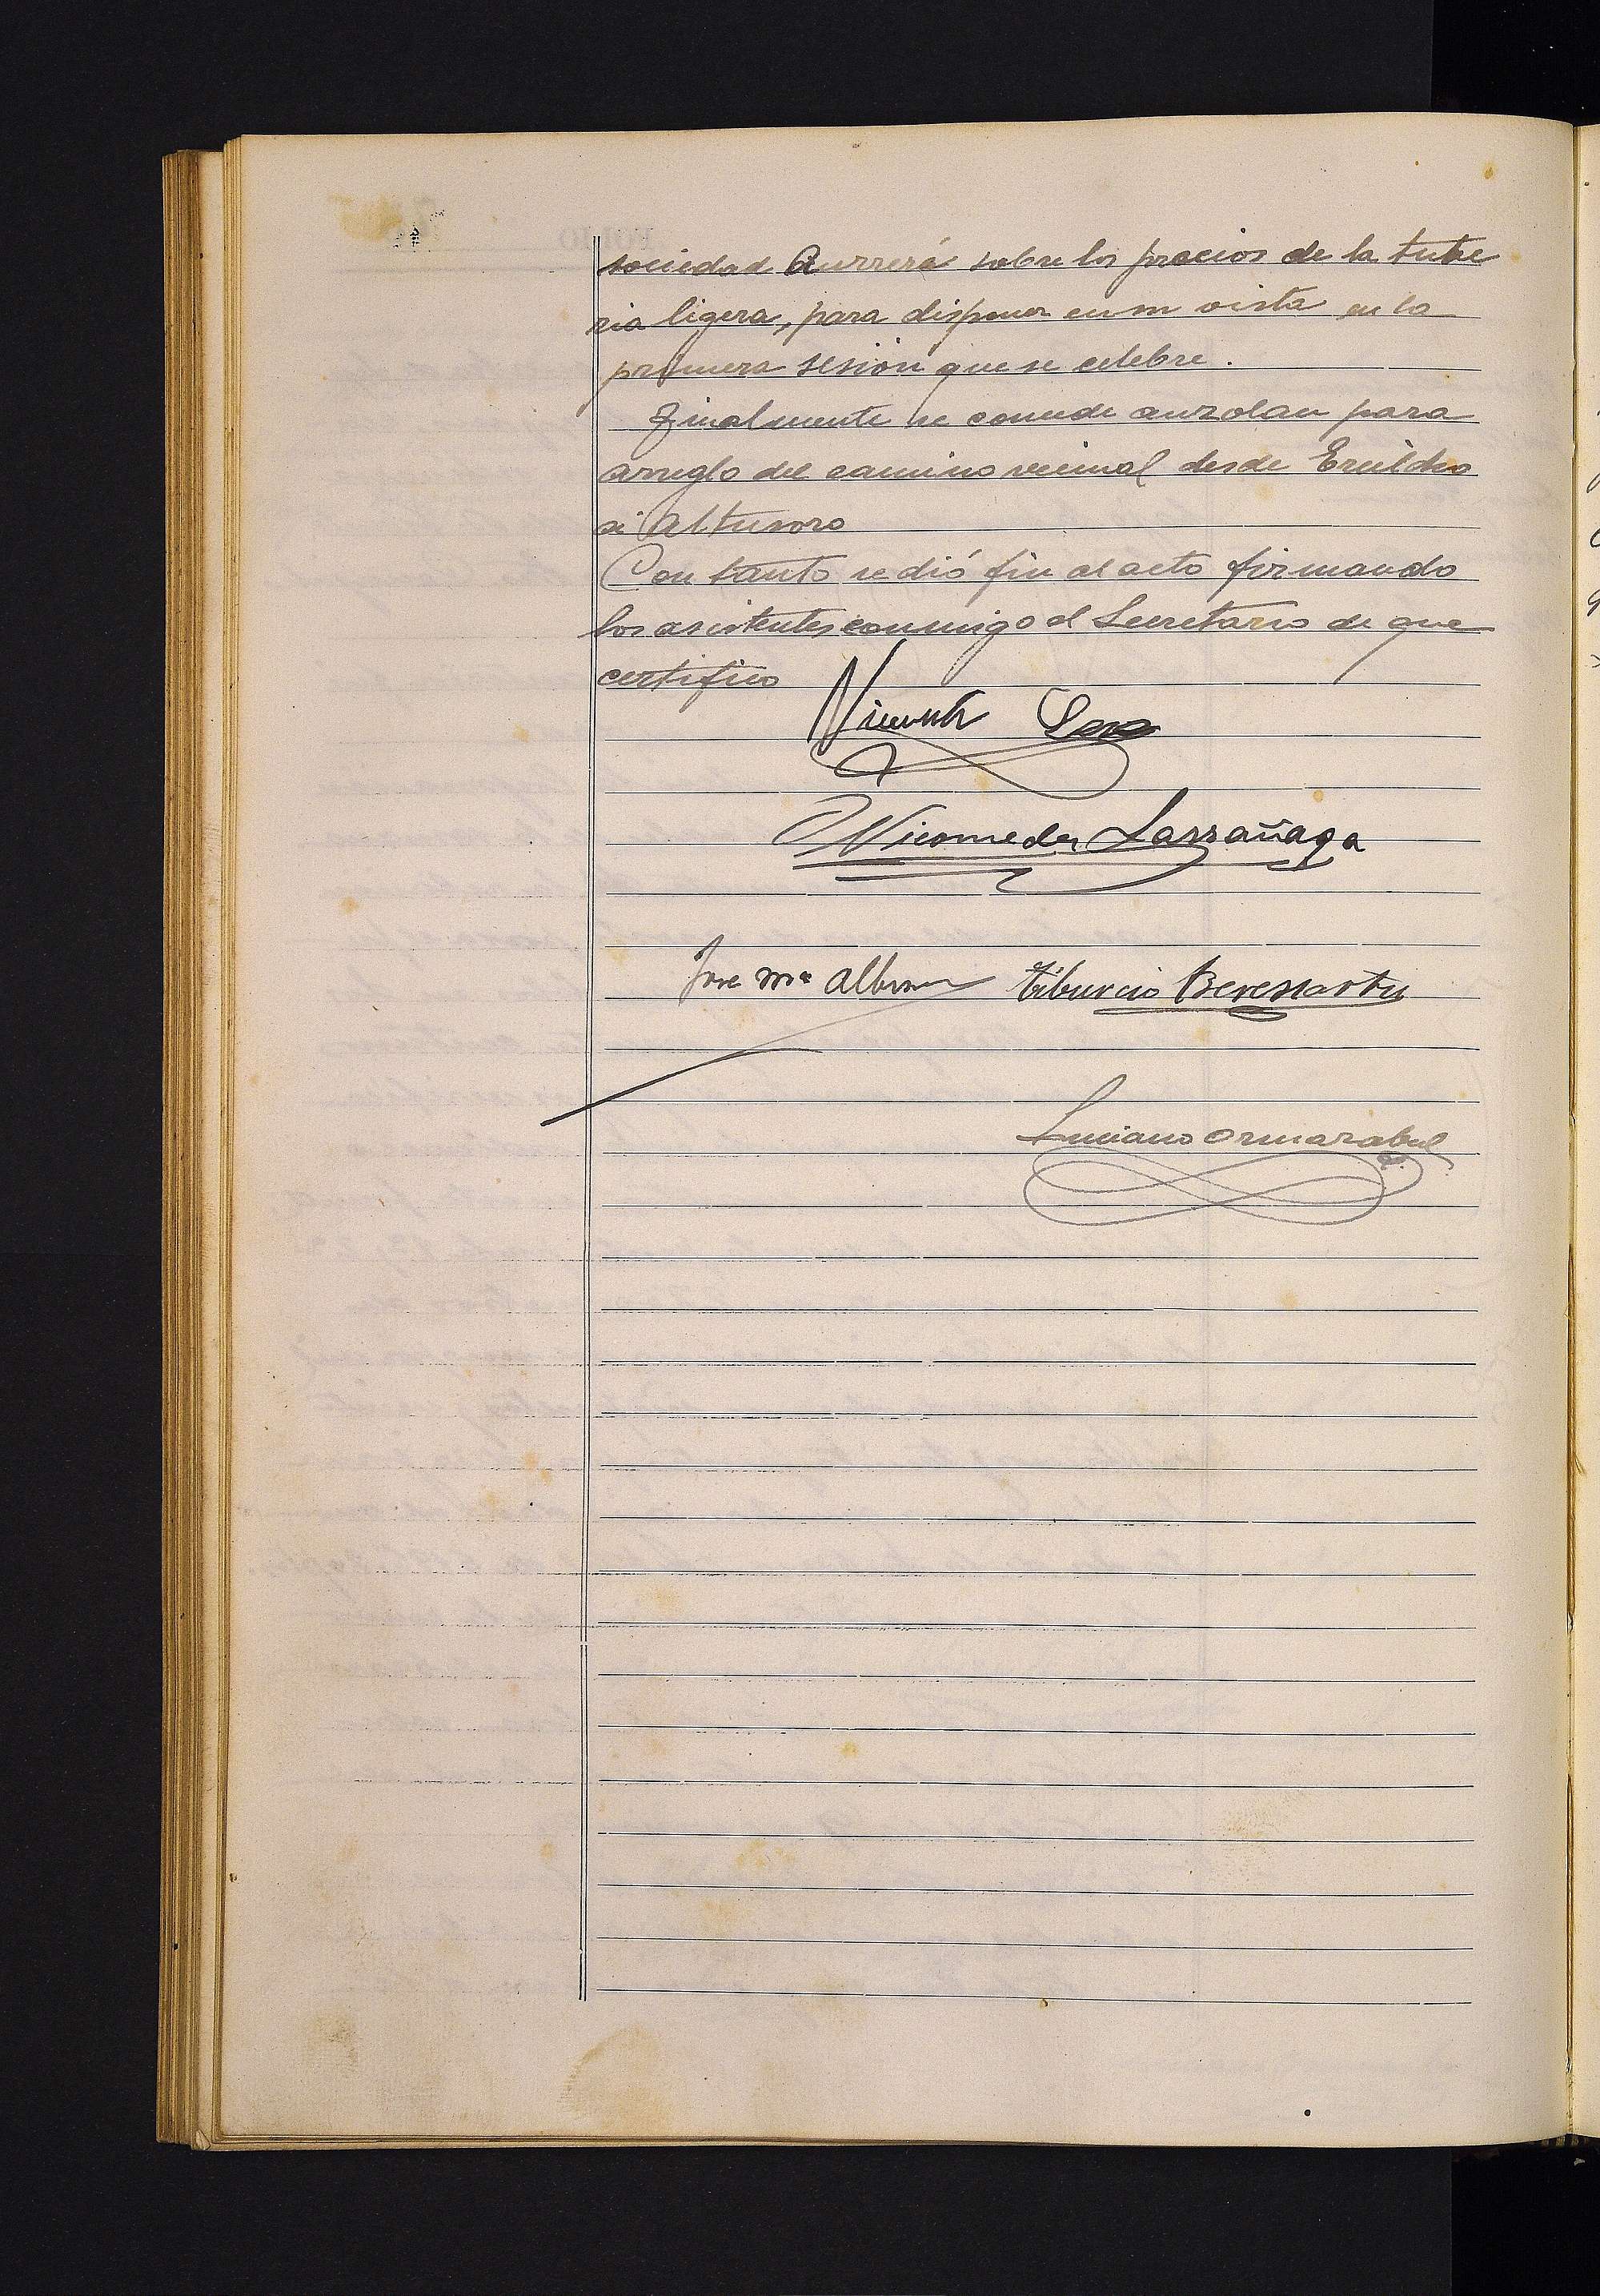 sociedad Aurrerá sobre los precios de la tube
ria ligera, para disponer en su vista en la
primera sesión que se celebre.
Finalmente se concede auzolan para
arreglo del camino vecinal desde
á Altusoro
Con tanto se dió fin al acto firmando
los asistentes conmigo el Secretario de que
certifico
Vicente
Nicomedes Larrañaga
Jose Mª Tiburcio Beresiartu
Luciano Ormazabal